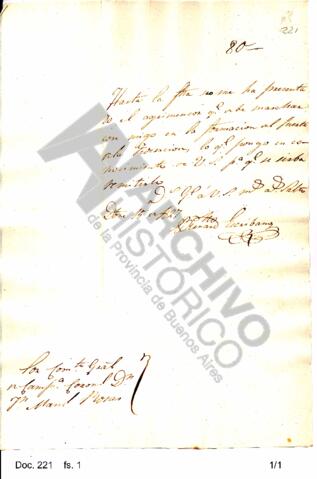 221
80-
Hasta la fha no me ha presenta
do el agrimensor qe debe marchar
conmigo en la formacion al fuerte
lo qe pongo en co
nocimiento de V.S. pa qe se sirba
remitirlo
Dios Gue a V.S. ms as
Escribano
Sor Comte Gral
n Campa Coronel Dn
Jn Manl Rosas
ARCHIVO
HISTÓRICO
de la Provincia de Buenos Aires
Doc. 221 fs. 1 1/1